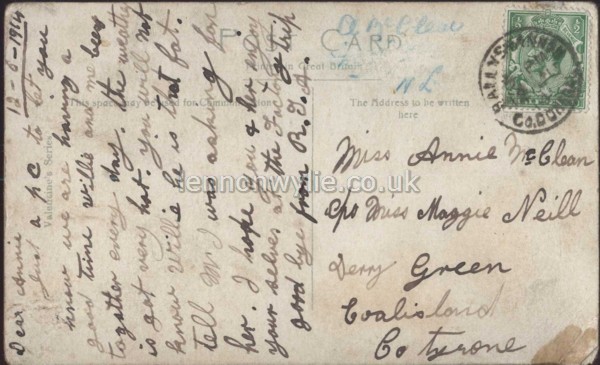 12-8-1914
Dear Annie
Just a pc to let you
know we are having a
good time Willie and me been
together every day. The weather
is got very hot. you will not
know Willie he is that fat.
tell M I was asking for
her. I hope you & her enjoy
your selves at the Factory trip
good bye from R.J.A.
CARD
in Great Britain
This space may be used for Communication
The Address to be written
here
Valentine's Series
A McClean
BALLYKANNAN
Co. DOWN
½
½
Miss Annie McClean
c/o Miss Maggie Neill
Derry Green
Coalisland
Co Tyrone
lennonwylie.co.uk